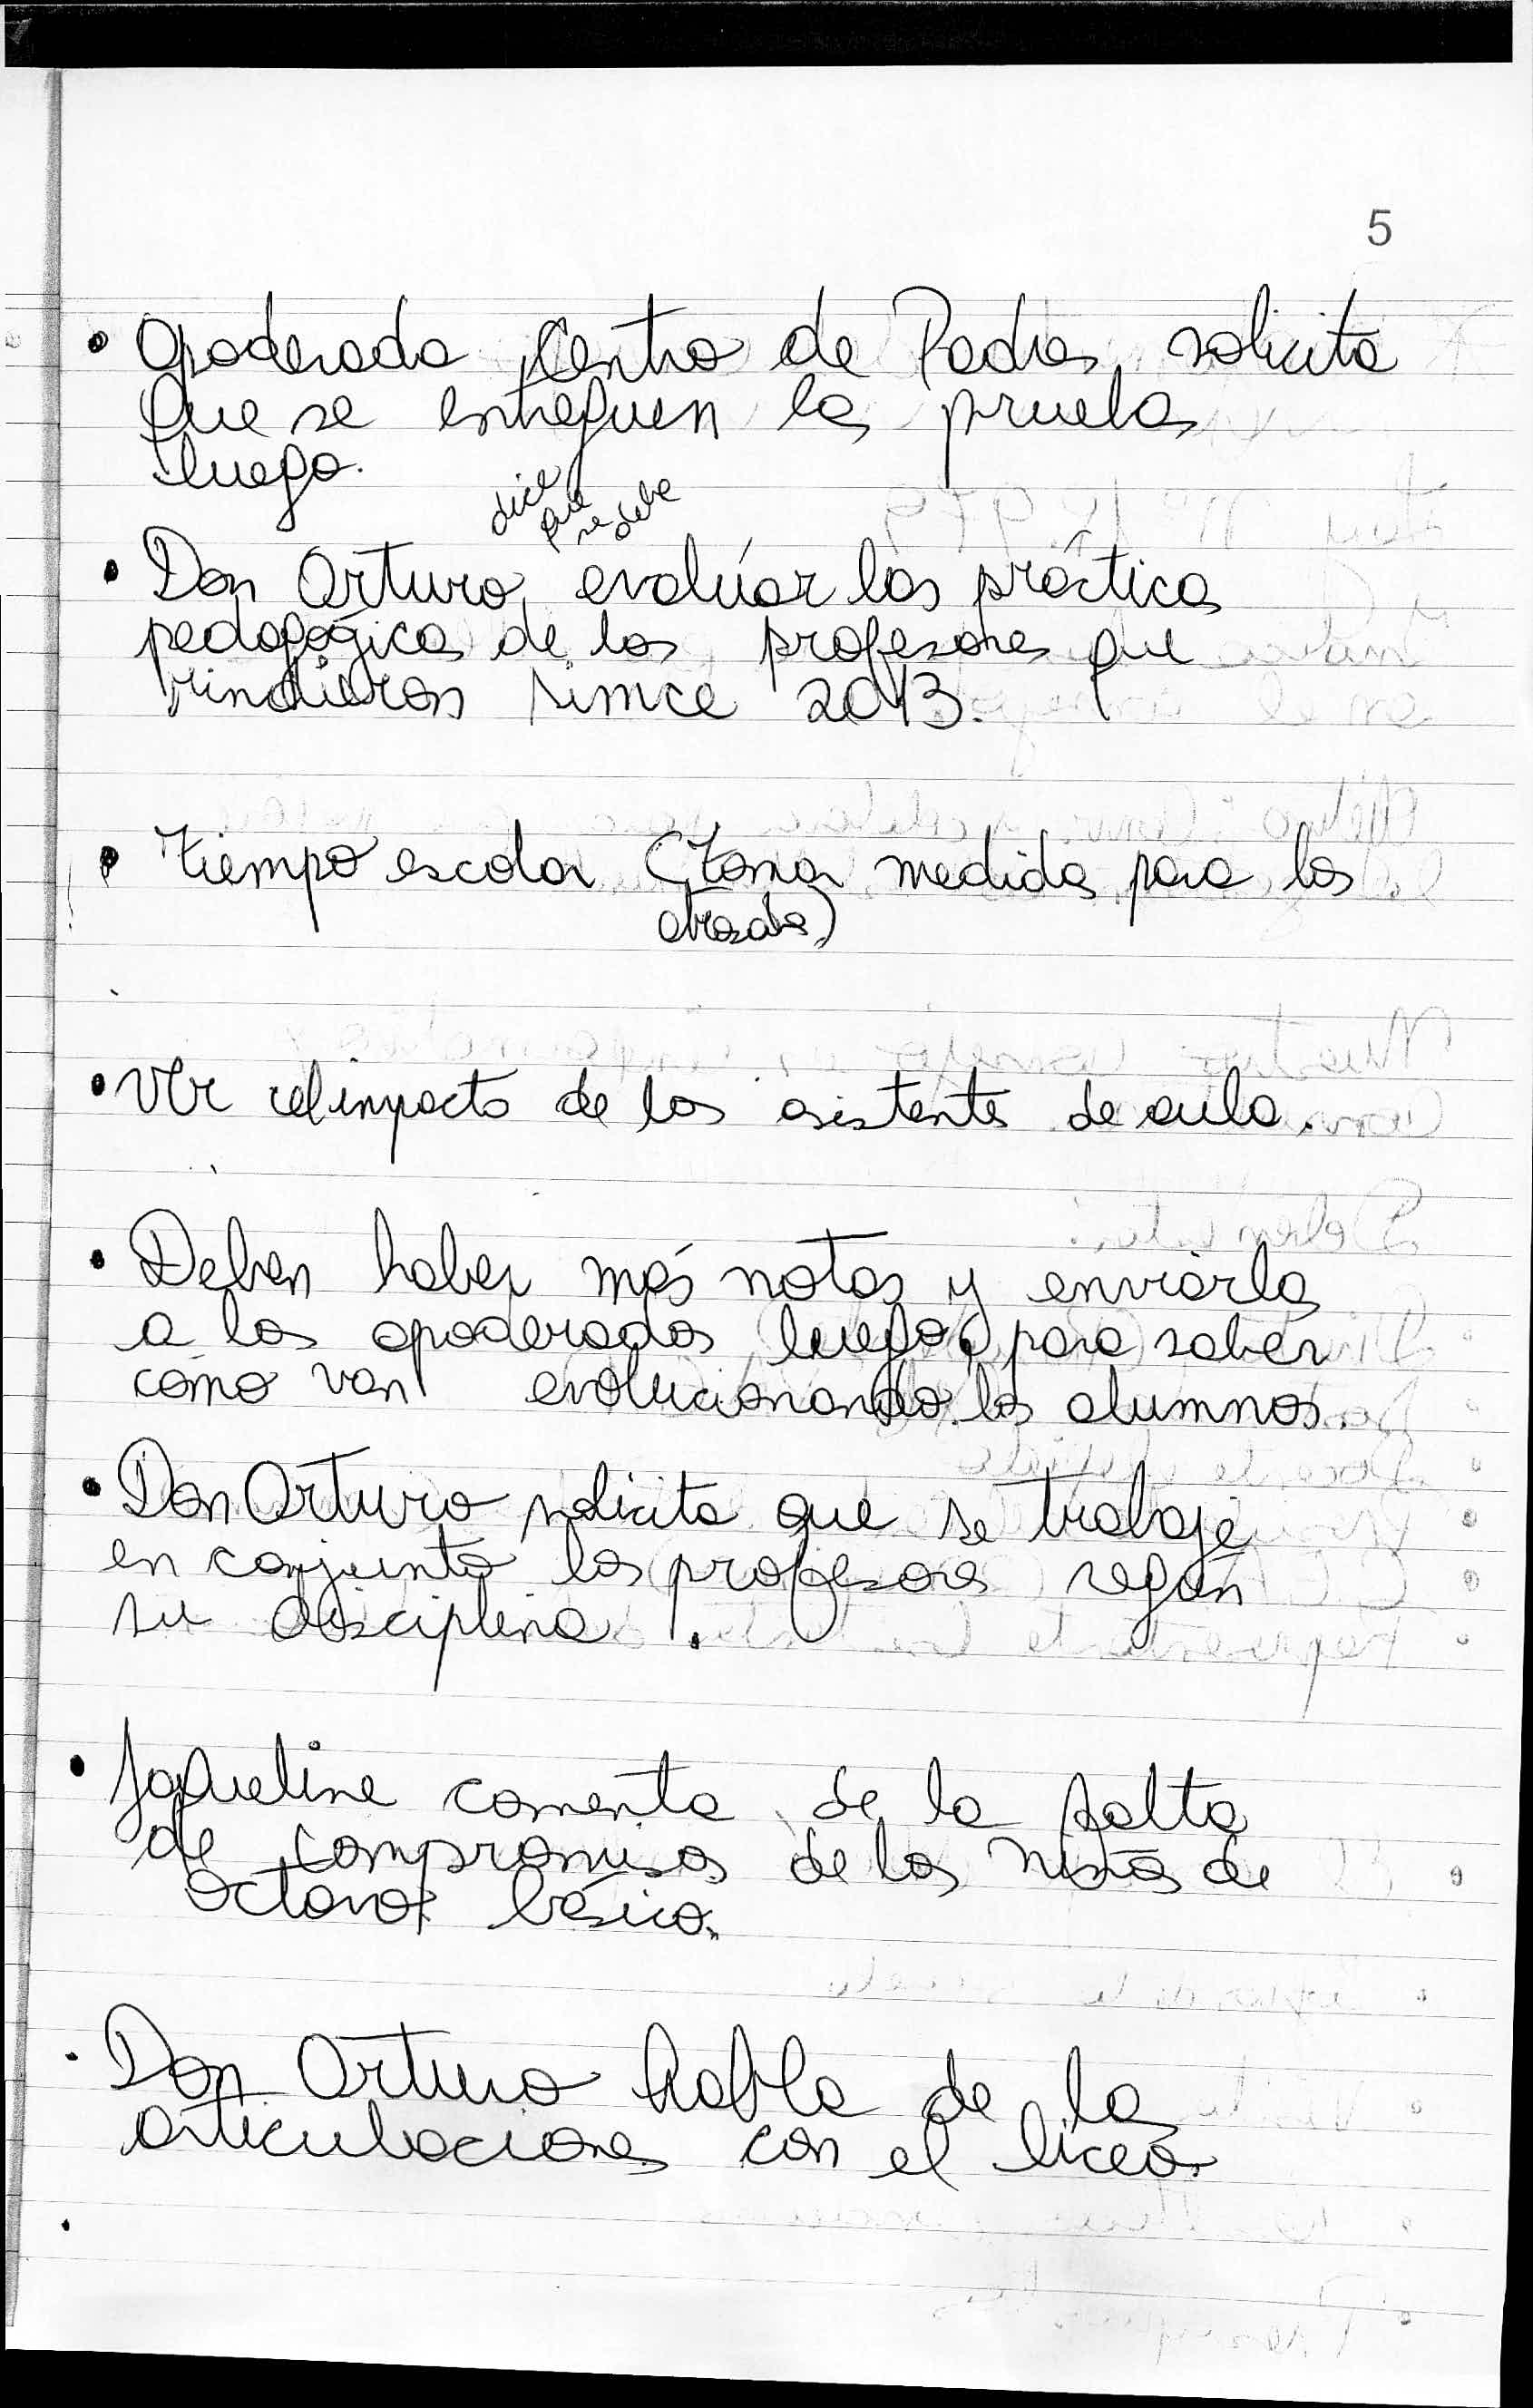 5
• Apoderada Centro de Padres solicita
que se entreguen las pruebas
luego.
dice que se debe
• Don Arturo, evalúar las prácticas
pedagógicas de los profesores que
rindieron simce 2013.
• Tiempo escolar (Tomar medidas para los
atrasados)
• Ver el impacto de los asistentes de aula.
• Deben haber más notas y enviarlas
a los apoderados luego, para saber
como van evolucionando los alumnos.
• Don Arturo solicita que se trabaje
en conjunto los profesores según
su disciplina.
• Jaqueline comenta de la falta
de compromisos de los niños de
octavo básico.
• Don Arturo habla de las
articulaciones con el liceo.
•